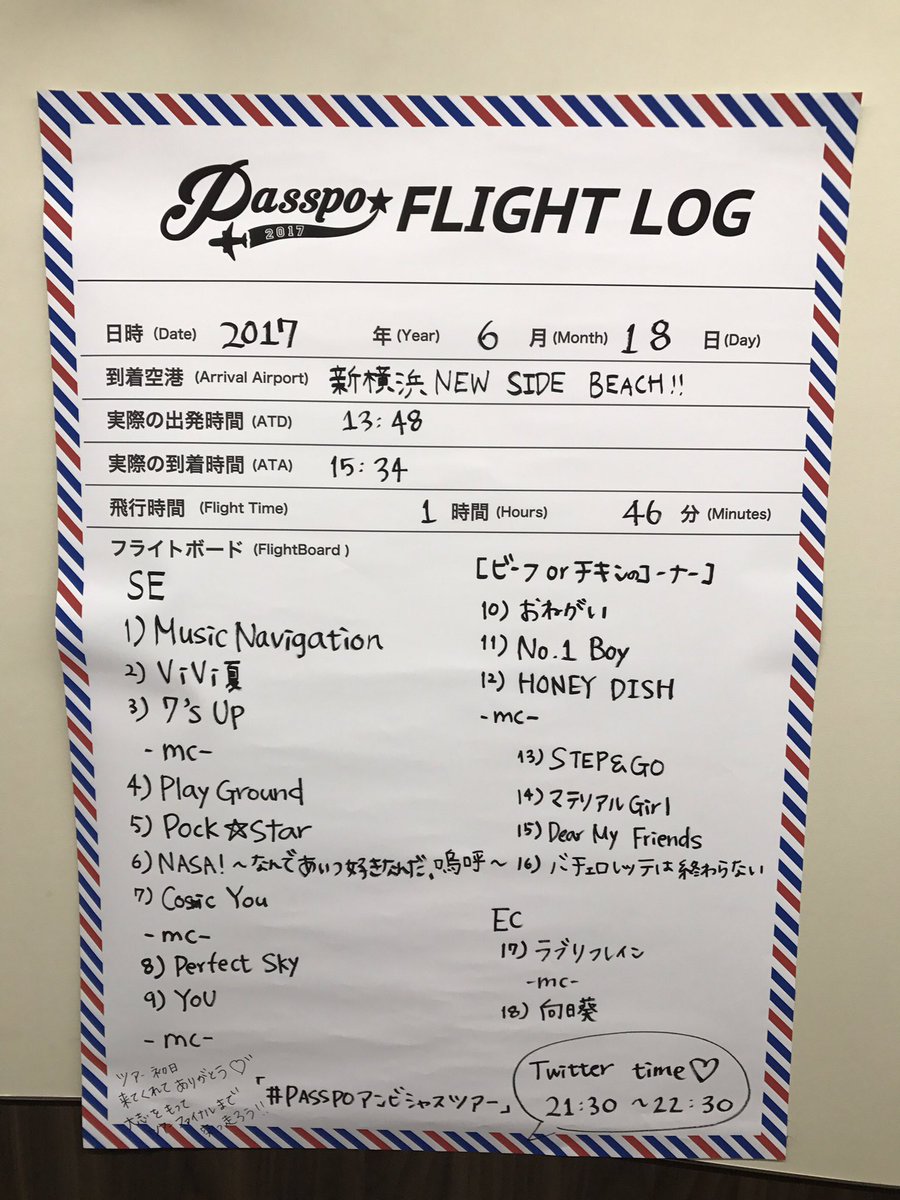 Passpo★ FLIGHT LOG
2017
日時 (Date) 2017 年 (Year) 6 月 (Month) 18 日 (Day)
到着空港 (Arrival Airport) 新横浜 NEW SIDE BEACH!!
実際の出発時間 (ATD) 13:48
実際の到着時間 (ATA) 15:34
飛行時間 (Flight Time) 1 時間 (Hours) 46 分 (Minutes)
フライトボード (FlightBoard)
SE
1) Music Navigation
2) ViVi夏
3) 7's Up
- mc -
4) Play Ground
5) Pock☆Star
6) NASA! ～なんであいつ好きなんだ、嗚呼～
7) Cosic You
- mc -
8) Perfect Sky
9) YoU
- mc -
[ビーフ or チキンのコーナー]
10) おねがい
11) No.1 Boy
12) HONEY DISH
- mc -
13) STEP&GO
14) マテリアルGirl
15) Dear My Friends
16) バチェロレッテは終わらない
EC
17) ラブリフレイン
- mc -
18) 向日葵
ツアー初日
来てくれてありがとう♡
大志をもって
ツアーファイナルまで
走ろう!!
「#PASSPOアンビシャスツアー」
Twitter time♡
21:30 ～ 22:30